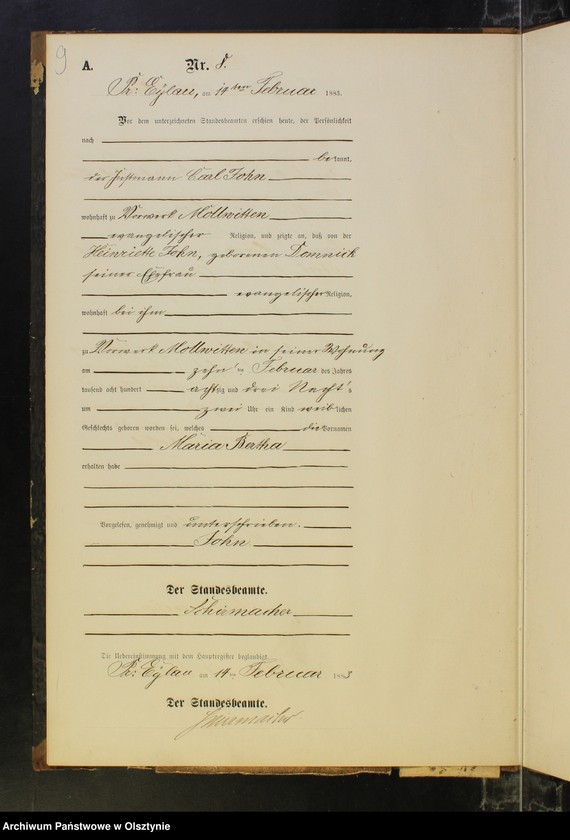 9
A. Nr. 8.
Pr: Eylau, am 14ten Februar 1883.
Vor dem unterzeichneten Standesbeamten erschien heute, der Persönlichkeit
nach
bekannt,
der Instmann Carl John
wohnhaft zu Vorwerk Mollwitten
evangelischer Religion, und zeigte an, daß von der
Heinriette John, geborenen Domnick
seiner Ehefrau
evangelischer Religion,
wohnhaft bei ihm
zu Vorwerk Mollwitten in seiner Wohnung
am zehn ten Februar des Jahres
tausend acht hundert achtzig und drei Nacht's
um zwei Uhr ein Kind weiblichen
Geschlechts geboren worden sei, welches die Vornamen
Maria Batha
erhalten habe
Vorgelesen, genehmigt und unterschrieben.
John
Der Standesbeamte.
Schumacher
Die Uebereinstimmung mit dem Hauptregister beglaubigt.
Pr: Eylau am 14ten Februar 1883
Der Standesbeamte.
Schumacher
Archiwum Państwowe w Olsztynie